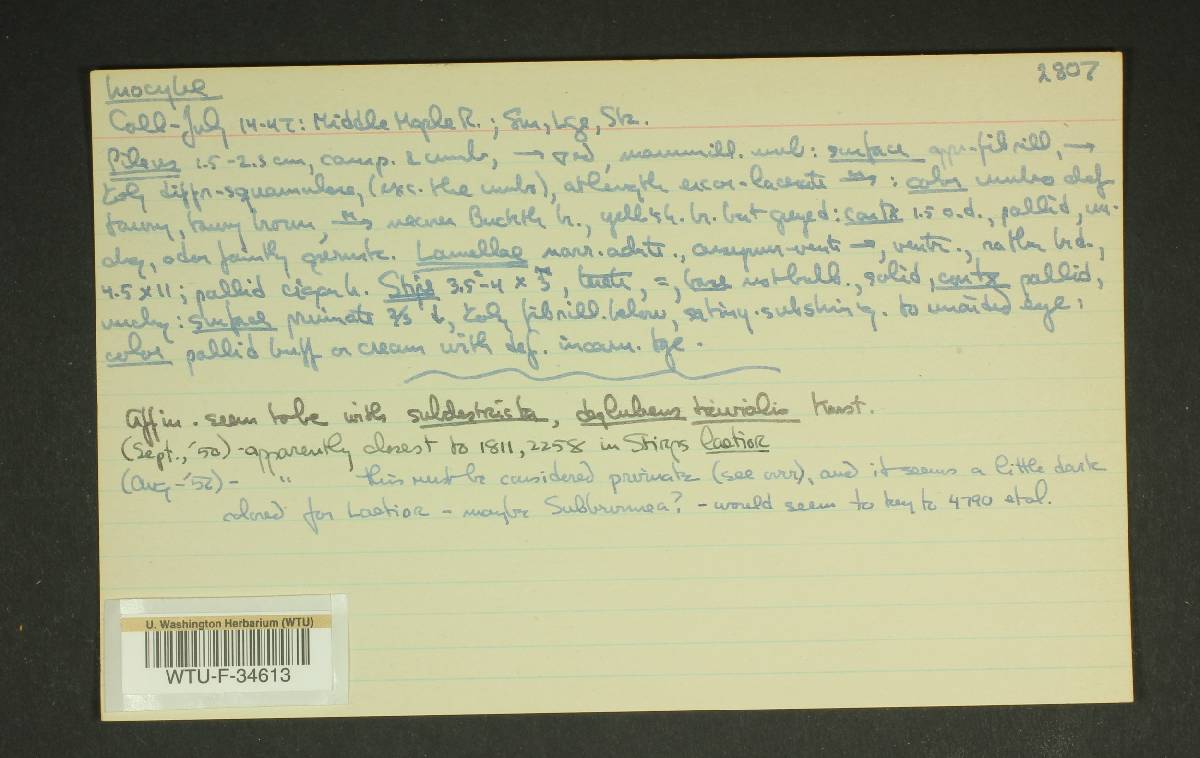 2807
Inocybe
Coll-July 14-47: Middle Maple R.; Sm, Lge, Stz.
Pileus 1.5-2.3 cm, camp. & umb., → mammill. umb: surface appr-fibrill, →
diffr-squamulose, (exc. the umbo), at length excor-lacerate : color umbo def
tawny, tawny brown, → nearer Buckth b., yell'sh. b. but greyed: contx 1.5 o.d., pallid, un-
chg, odor faintly spermatic. Lamellae narr. adnte., →, ventr., rather brd.,
4.5 x 11; pallid cigar b. Stipe 3.5-4 x 3, =, base not bulb., solid, contx pallid,
unchg: surface pruinate 2/3 ↓, fibrill. below, satiny-subshining. to unaided eye:
color pallid buff or cream with def. incarn. tge.
Affin. seem to be with subdestricta, deglubens trivialis Karst.
(Sept., '50) - apparently closest to 1811, 2258 in Stirps Laetior
(Aug-'52) - " this must be considered pruinate (see over), and it seems a little dark
colored for Laetior - maybe Subbrunnea? - would seem to key to 4790 et al.
U. Washington Herbarium (WTU)
WTU-F-34613